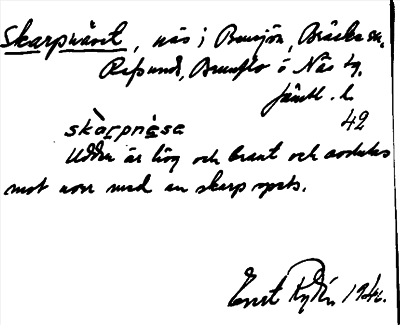 Skarpnäset, näs i Bensjön, Bräcke sn.
Refsund, Brunflo o Näs tg.
Jämtl. l.
42
skàrpnèse
Udden är hög och brant och avslutas
mot norr med en skarp spets.
Ernst Rydén 1946.